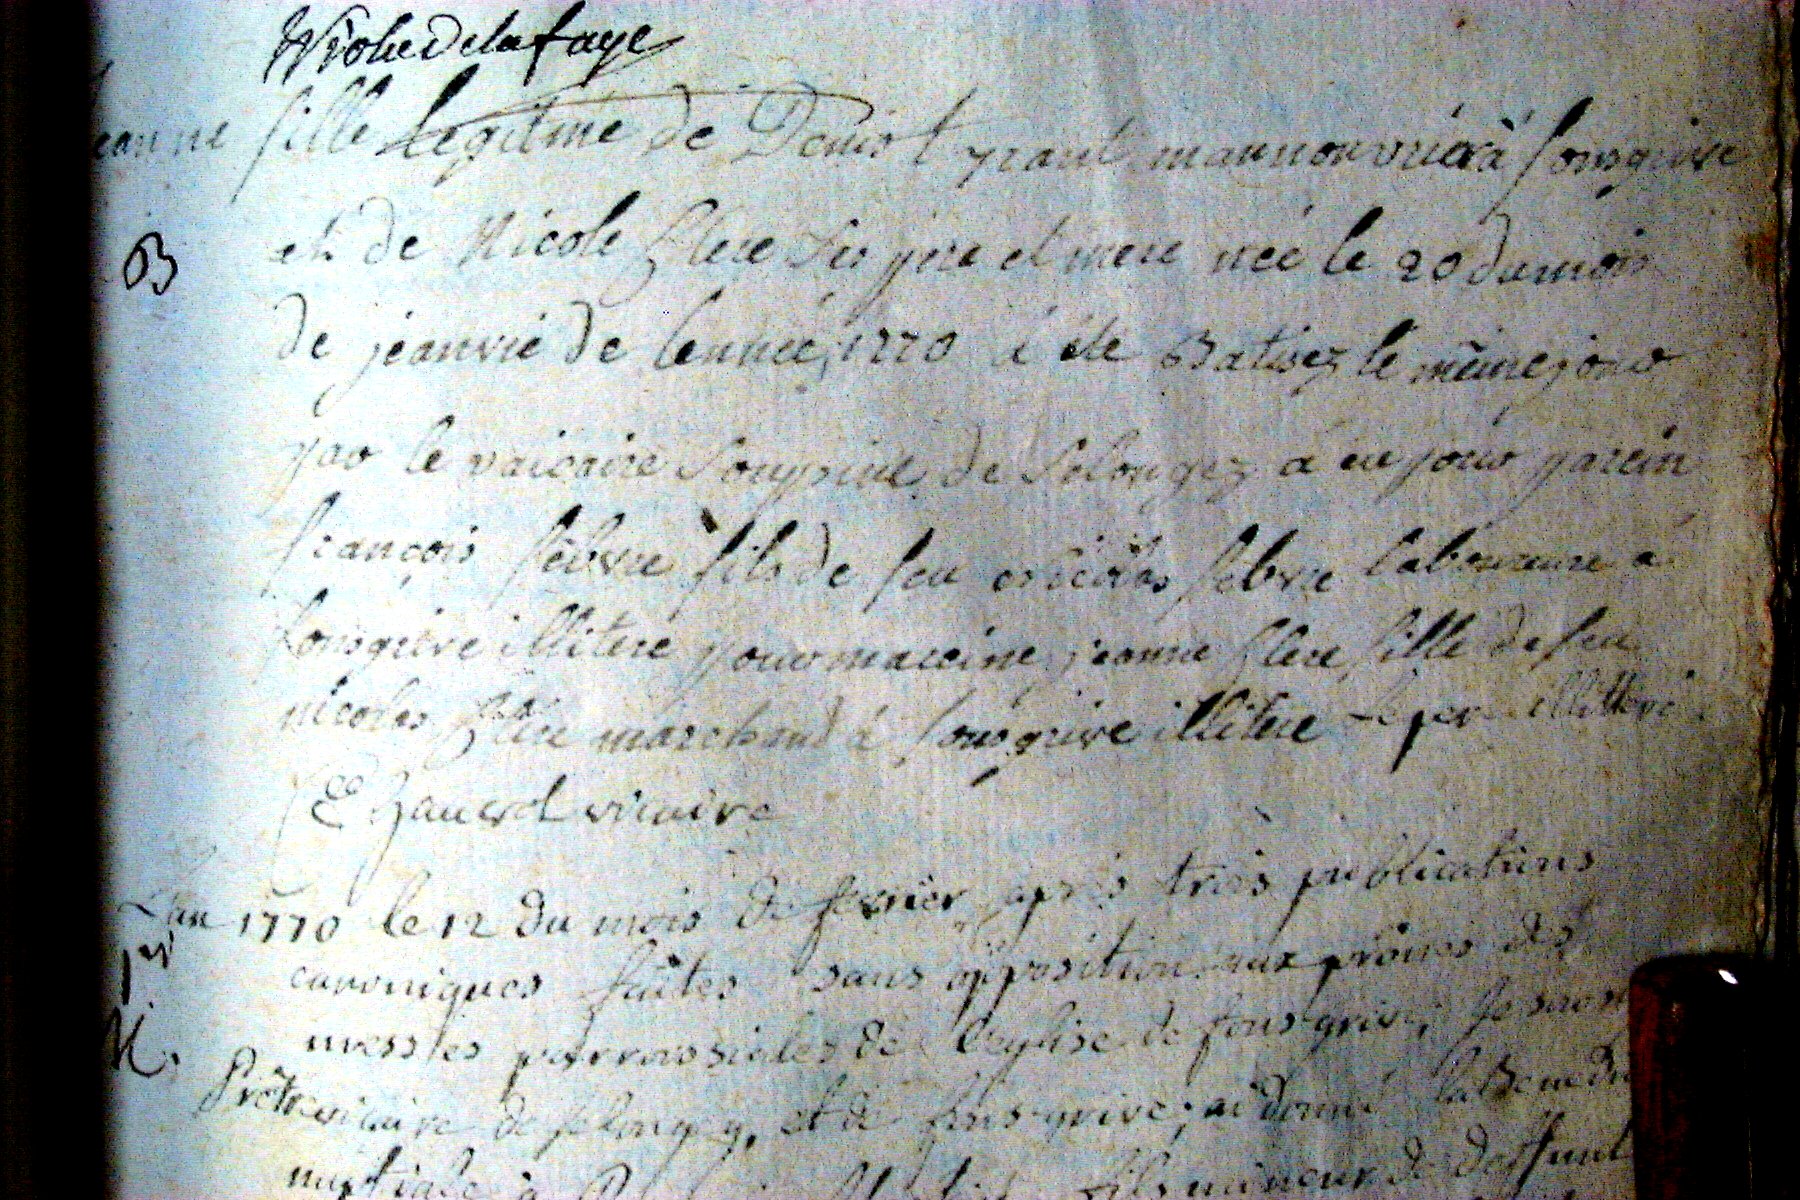 delafaye
Jeanne fille legitime de Denis manouvrier à fonsgrive
B
et de Nicole Clere ses pere et mere neé le 20 du mois
de jeanvié de lenneé 1770 á été Batisez le même jour
par le vaicaire de Selongez á eu pour parein
françois febvre fils de feu nicolas febvre laboureure a
fonsgrive illitere pour mareine jeanne Clere fille de feu
nicolas Clere marchand á fonsgrive illitere le per illitteré
vicaire
Lan 1770 le 12 du mois de fevrier après trois publications
canoniques faites sans opposition aux prônes des
M.
messes parroissiales de l'eglise de fons-grive, Je sous
Prêtre vicaire de selongey, et de fons-grive, ai donné la Bened
nuptiale à fils mineur de deffunt